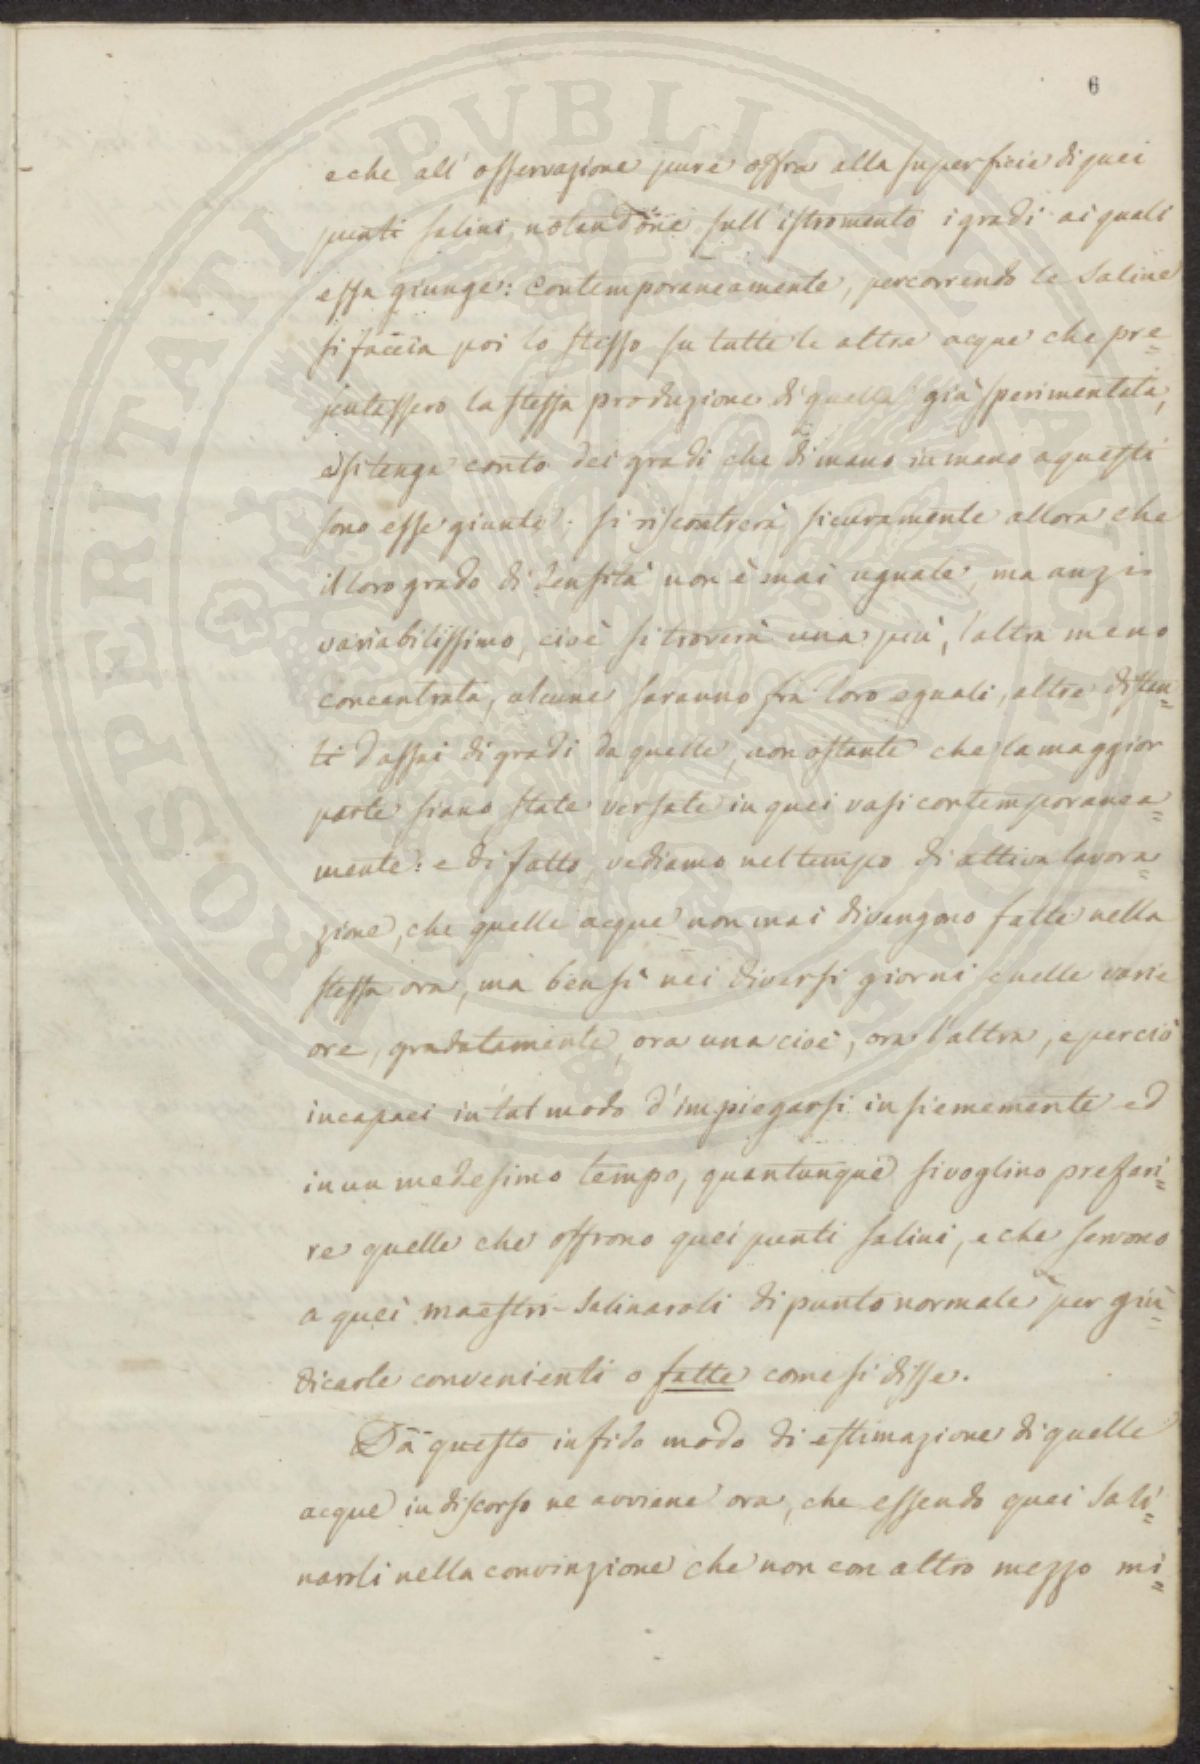 6
e che all' osservazione pure offra alla superficie di quei
punti salini, notandone sull' istromento i gradi ai quali
essa giunge: contemporaneamente, percorrendo le Saline
si faccia poi lo stesso su tutte le altre acque che pre=
sentassero la stessa produzione di quella già sperimentata,
e si tenga conto dei gradi che di mano in mano a questi
sono esse giunte; si riscontrerà sicuramente allora che
il loro grado di densità non è mai uguale, ma anzi
variabilissimo, cioè si troverà una più, l'altra meno
concentrata, alcune saranno fra loro eguali, altre distan=
ti d'assai di gradi da quelle, non ostante che la maggior
parte siano state versate in quei vasi contemporanea=
mente: e di fatto, vediamo nel tempo di attiva lavora=
zione, che quelle acque non mai divengono fatte nella
stessa ora, ma bensì nei diversi giorni e nelle varie
ore, gradatamente, ora una cioè, ora l'altra, e perciò
incapaci in tal modo d'impiegarsi insiememente ed
in un medesimo tempo, quantunque si voglino preferi=
re quelle che offrono quei punti salini, e che servono
a quei maestri-Salinaroli di punto normale per giu=
dicarle convenienti o fatte come si disse.
Da questo infido modo di estimazione di quelle
acque in discorso ne avviene ora, che essendo quei Sali=
naroli nella convinzione che non con altro mezzo mi=
PROSPERITATI PUBLICAE AUGENDAE